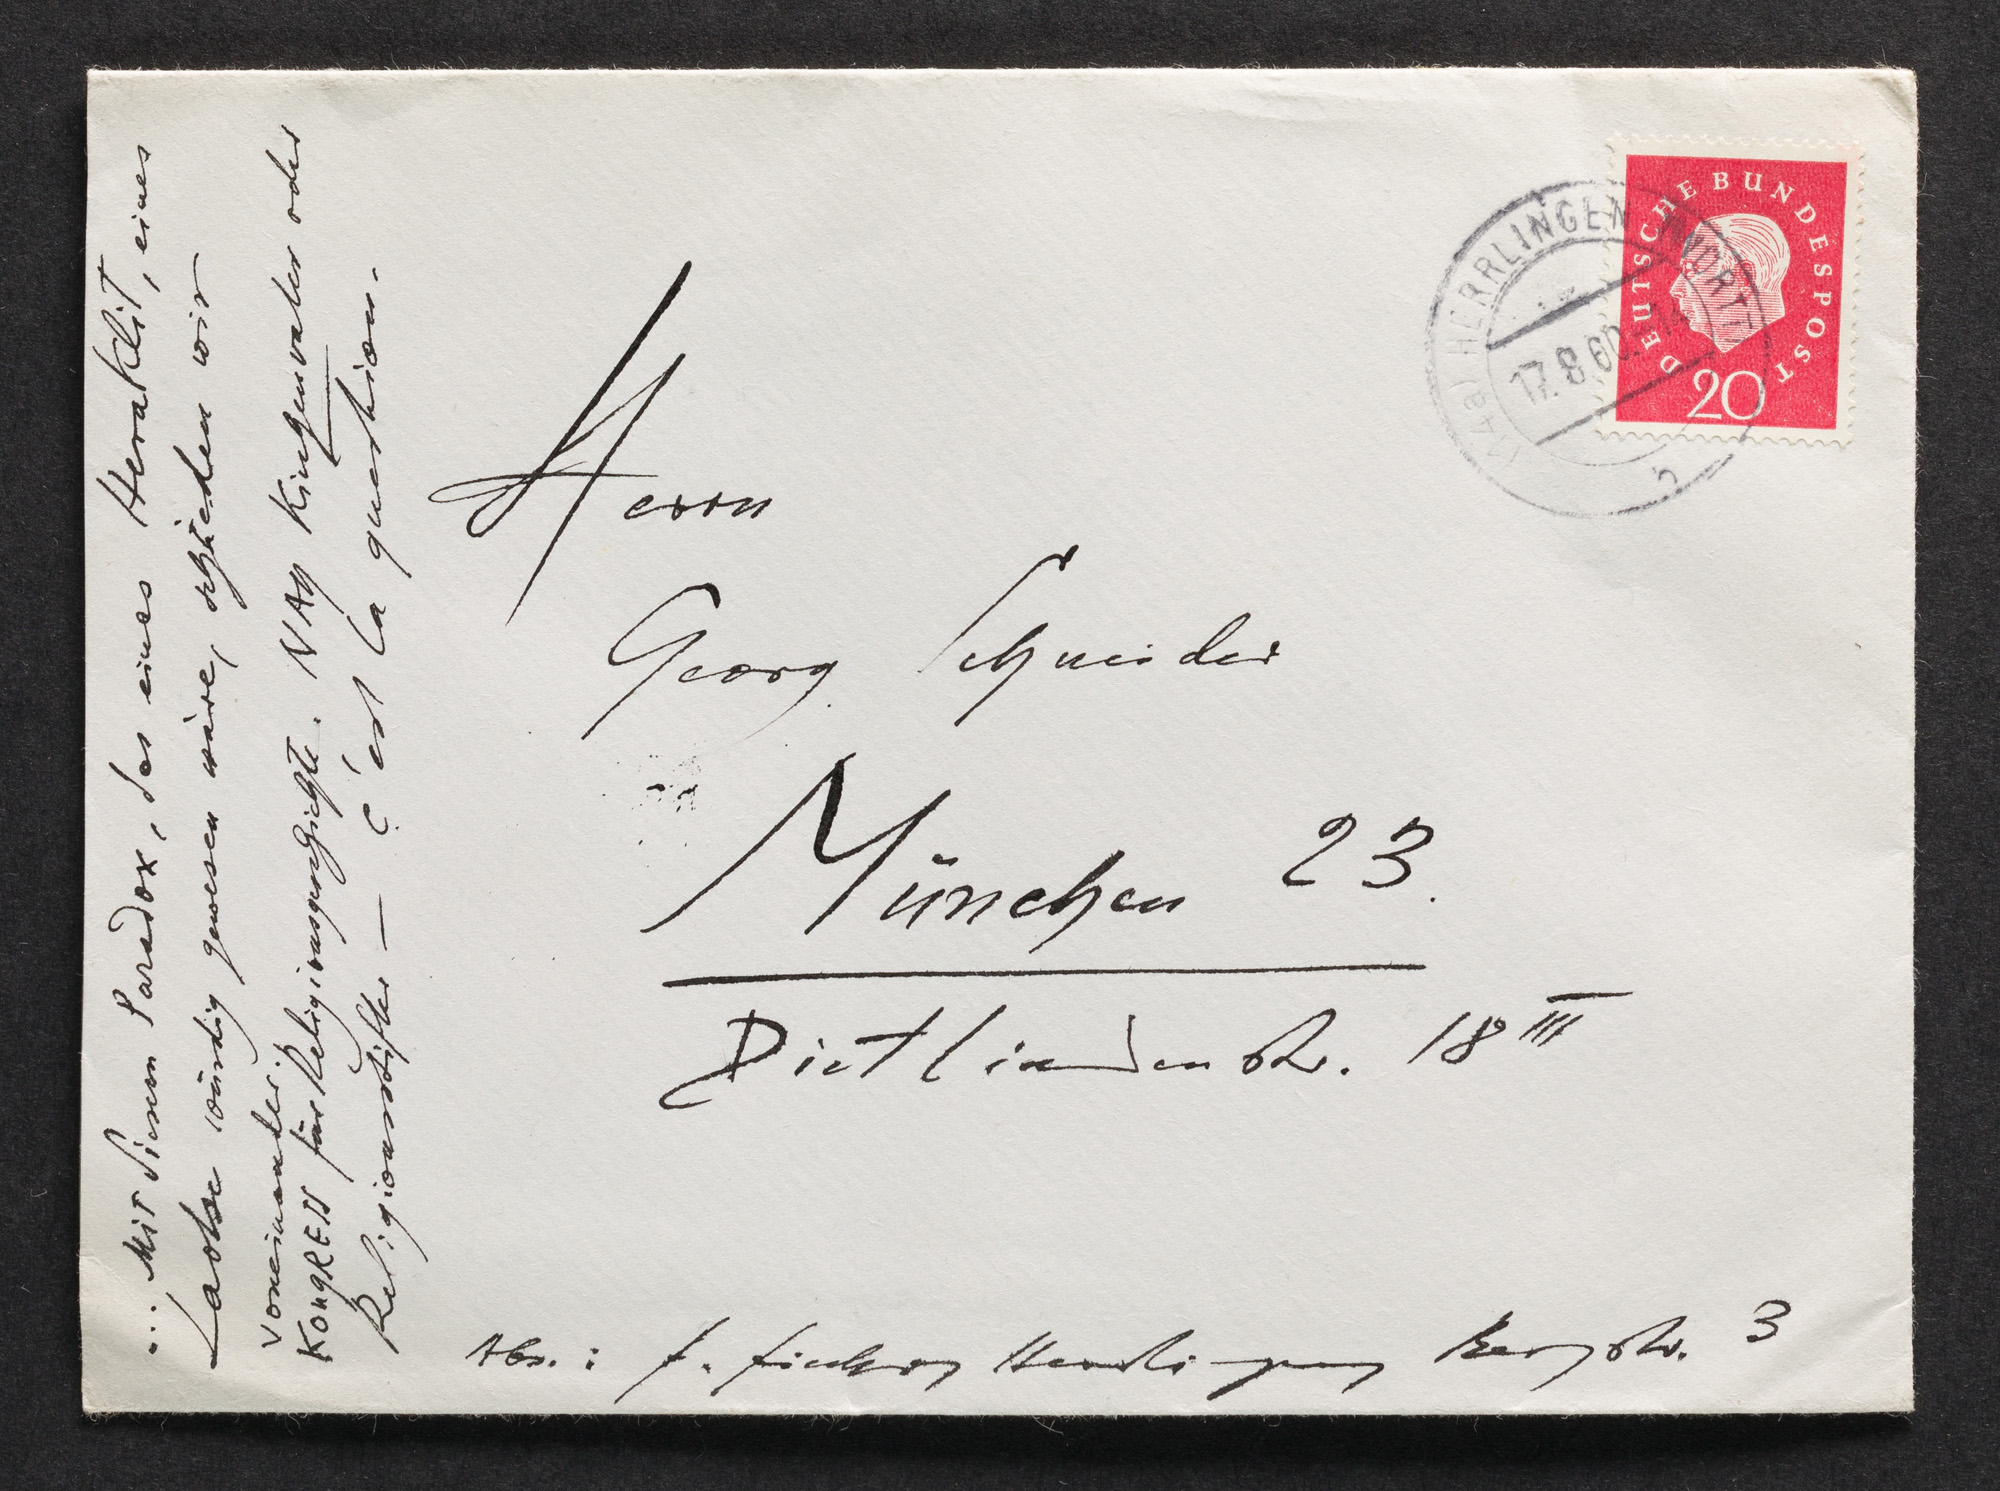 ... Mit diesem Paradox, das eines Heraklit, eines
Laotse würdig gewesen wäre, schieden wir
voneinander.
KongRESS für Religionsgeschichte. NAG Kirchenvater oder
Religionsstifter — c'est la question.
Herrn
Georg Schneider
München 23.
Dietlindenstr. 18 III
Abs.: f. Herrlingen Bergstr. 3
DEUTSCHE BUNDESPOST
20
(14a) HERRLINGEN
17.8.60